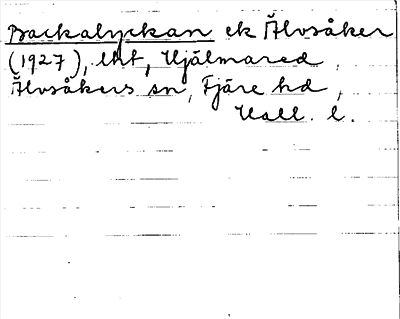 Backalyckan ek Älvsåker
(1927), lht, Hjälmared
Älvsåkers sn, Fjäre hd,
Hall. l.